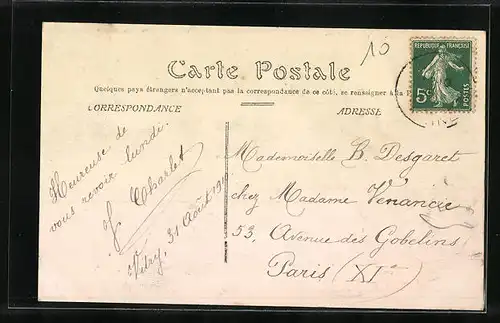 10
REPUBLIQUE FRANÇAISE
5c
POSTES
Carte Postale
Quelques pays étrangers n'acceptant pas la correspondance de ce côté, se renseigner à la
CORRESPONDANCE
ADRESSE
Heureuse de
vous revoir lundi.
Charlet
Vitry, 31 Août 191
Mademoiselle B. Desgaret
chez Madame Venancie
53, Avenue des Gobelins
Paris (XIe